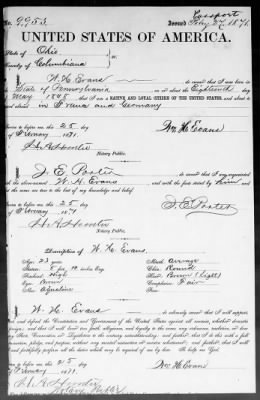 No. 9953. Issued Feby 27, 1871.
Passport
UNITED STATES OF AMERICA.
State of Ohio
County of Columbiana
W. H. Evans do swear that I was born in
State of Pennsylvania on or about the Eighteenth day
May 1848, that I am a NATIVE AND LOYAL CITIZEN OF THE UNITED STATES, and about
travel in France and Germany
to before me this 25 day Wm H. Evans
of February 1871.
Notary Public.
J. E. Porter
W. H. Evans and with the facts stated by him
and that the same are true to the best of my knowledge and belief.
to before me this 25 day
of February 1871 J. E. Porter
Notary Public.
Description of W. H. Evans.
Age: 23 years Mouth average
Stature: 5 feet 10 inches Eng. Chin: Round
Forehead: High Hair: Brown (Light)
Eyes: Brown Complexion: Fair
Nose: Aquiline Face:
W. H. Evans do solemnly swear that I will support,
protect, and defend the Constitution and Government of the United States against all enemies, whether domestic
or foreign; and that I will bear true faith, allegiance, and loyalty to the same, any ordinance, resolution, or law of
any State, Convention, or Legislature to the contrary notwithstanding; and further, that I do this with a full
determination, pledge, and purpose, without any mental reservation or evasion whatsoever; and further, that I will well and
faithfully perform all the duties which may be required of me by law. So help me God.
to before me this 25 day Wm H. Evans
of February 1871.
Notary Public